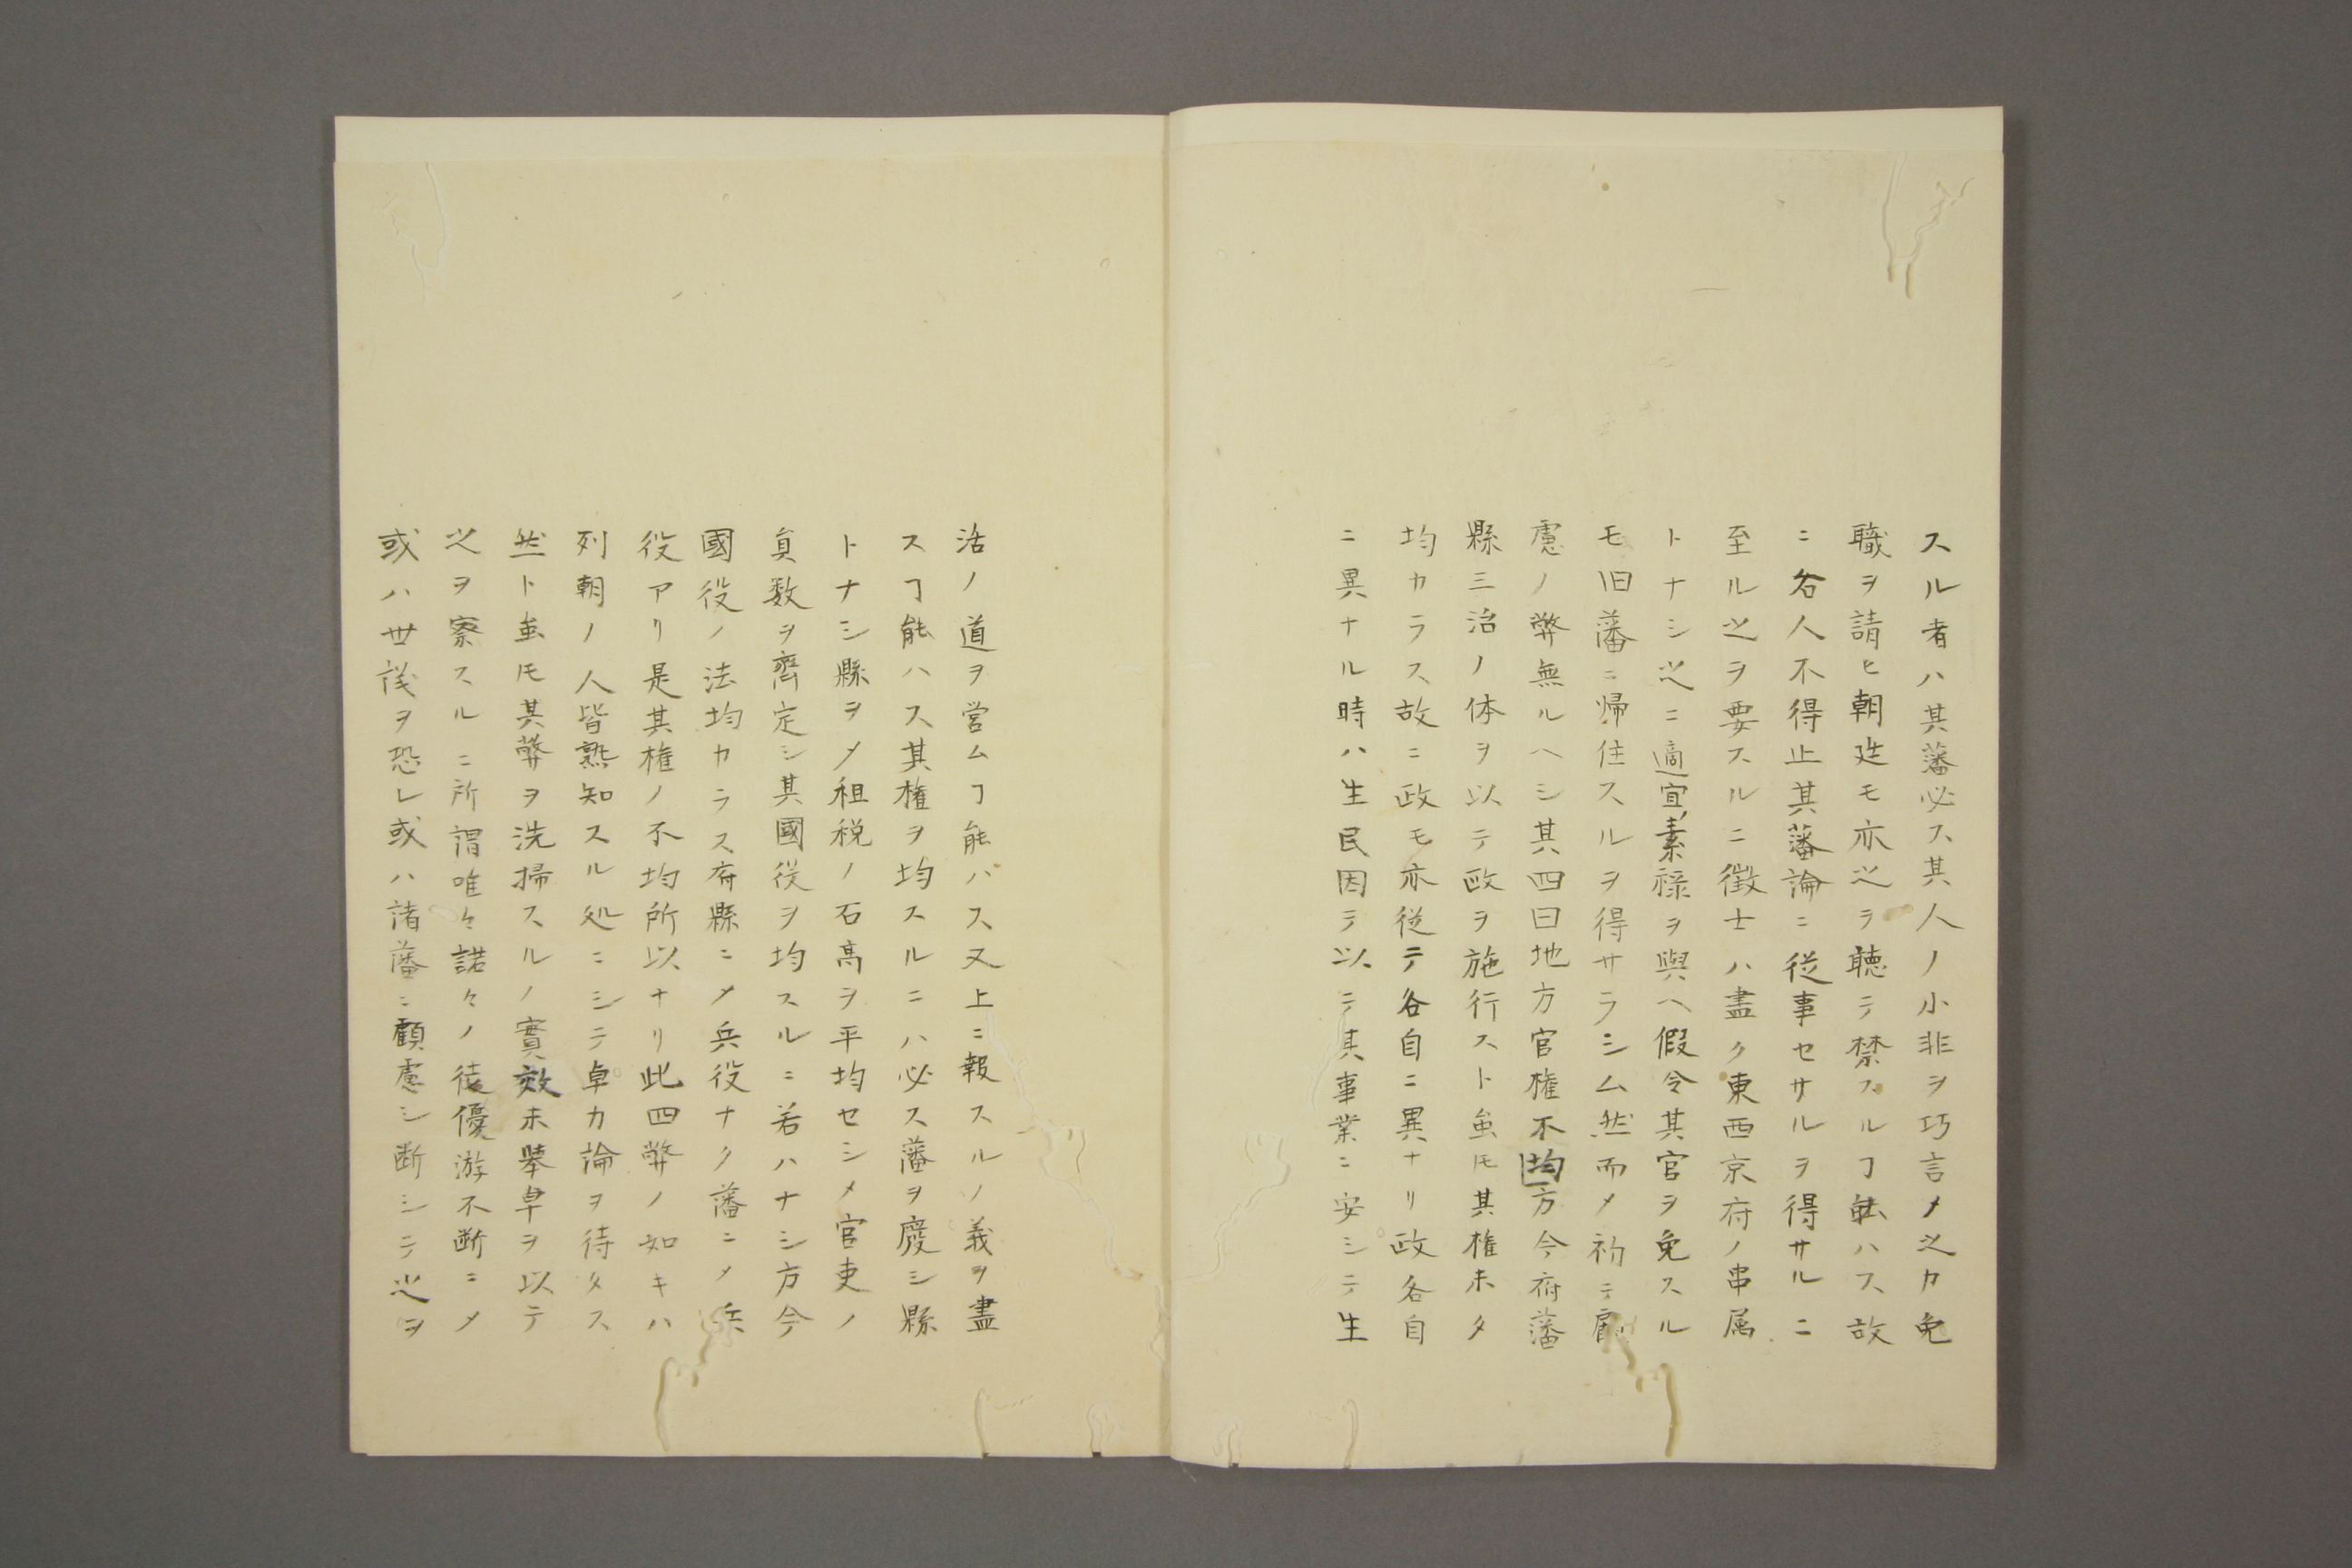 スル者ハ其藩必ス其人ノ小非ヲ巧言メ之カ免
職ヲ請ヒ朝廷モ亦之ヲ聴テ禁スルヿ能ハス故
ニ各人不得止其藩論ニ従事セサルヲ得サルニ
至ル之ヲ要スルニ徴士ハ盡ク東西京府ノ串属
トナシ之ニ適宜素禄ヲ與ヘ假令其官ヲ免スル
モ旧藩ニ帰住スルヲ得サラシム然而メ初テ顧
慮ノ弊無ルヘシ其四曰地方官権不均方今府藩
縣三治ノ体ヲ以テ政ヲ施行スト虽𪜈其権未タ
均カラス故ニ政モ亦従テ各自ニ異ナリ政各自
ニ異ナル時ハ生民因テ以テ其事業ニ安シテ生
活ノ道ヲ営ムヿ能ハス又上ニ報スルノ義ヲ盡
スヿ能ハス其権ヲ均スルニハ必ス藩ヲ廢シ縣
トナシ縣ヲメ租税ノ石高ヲ平均セシメ官吏ノ
員数ヲ齊定シ其國役ヲ均スルニ若ハナシ方今
國役ノ法均カラス府縣ニメ兵役ナク藩ニメ兵
役アリ是其権ノ不均所以ナリ此四弊ノ如キハ
列朝ノ人皆熟知スル処ニシテ卓カ論ヲ待タス
然ト虽𪜈其弊ヲ洗掃スルノ實效未挙卓ヲ以テ
之ヲ察スルニ所謂唯々諾々ノ徒優游不断ニメ
或ハ世議ヲ恐レ或ハ諸藩ニ顧慮シ断シテ之ヲ